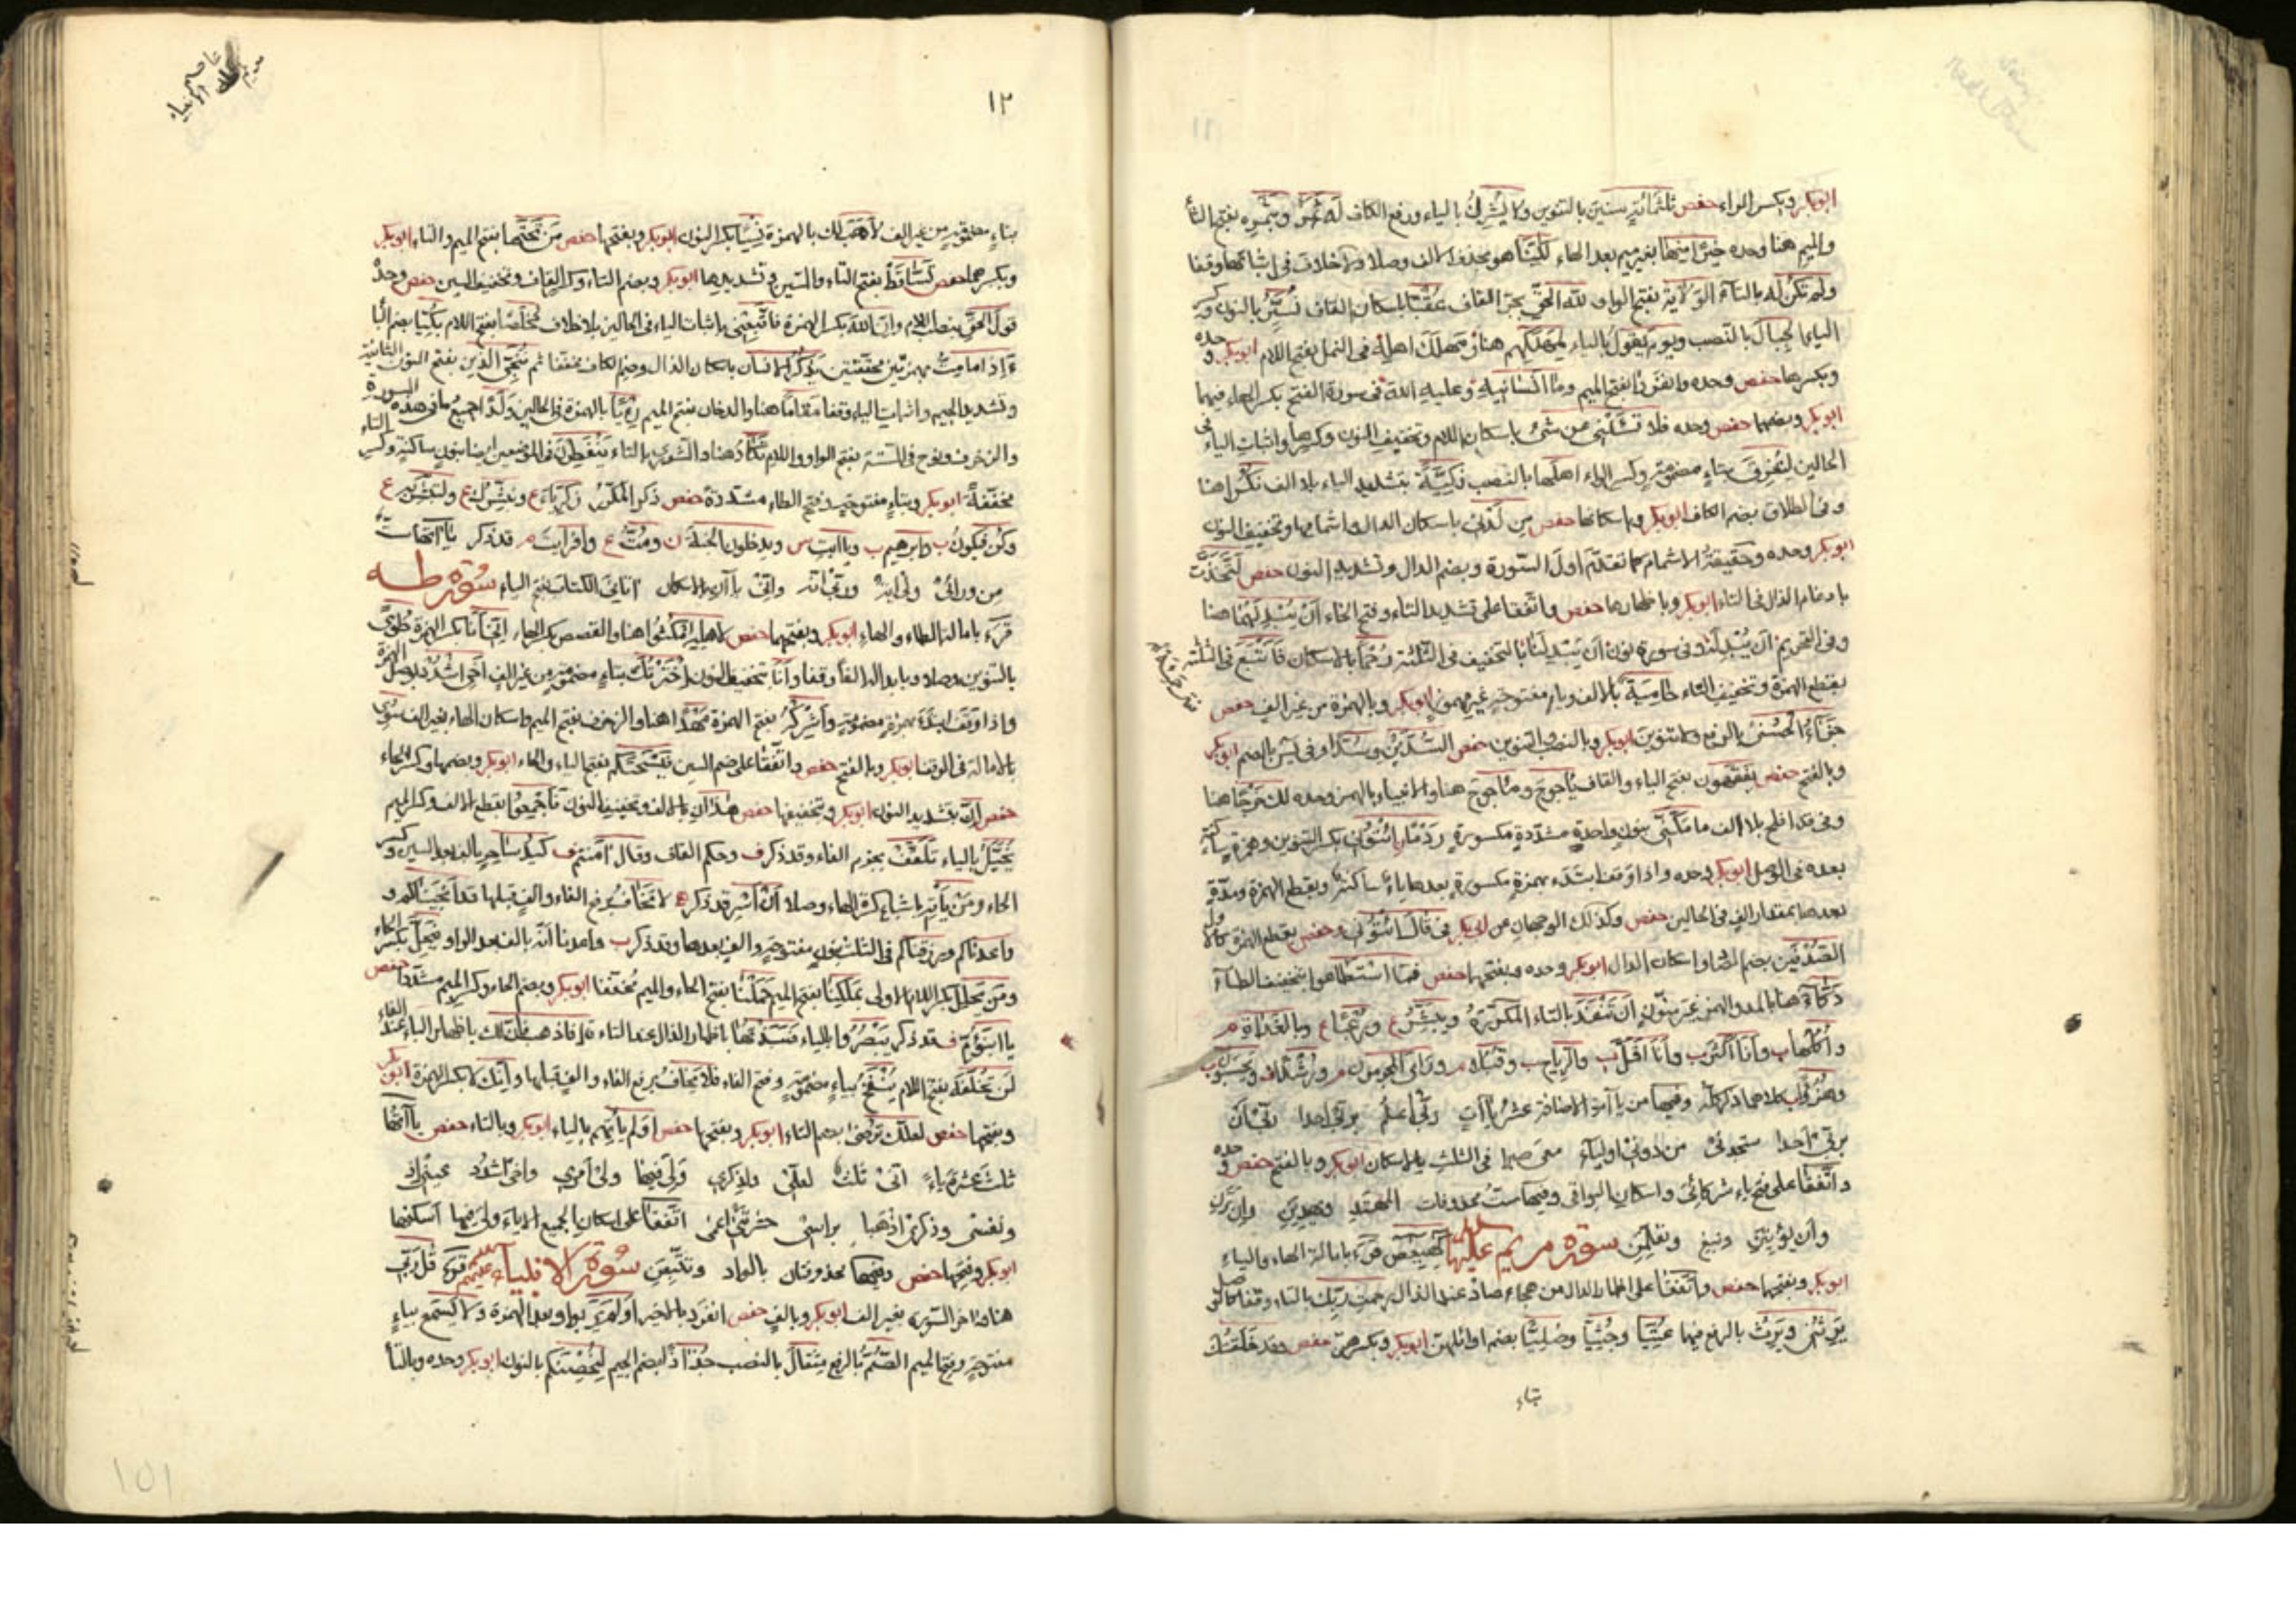 ابوبكر وبكسر الراء حفص ثلثمائة سنين بالتنوين ولا يشرك بالياء ورفع الكاف له ثمر وبثمره بفتح الثا
والميم هنا وحده خيرا منها بغير ميم بعد الهاء لكنا هو بحذف الالف وصلا ولا خلاف فى اثباتها وقفا
ولم تكن له بالتاء الولاية بفتح الواو لله الحق بجر القاف عقبا باسكان القاف نسير بالنون وكسر
الياء الجبال بالنصب ويوم يقول بالياء لمهلكهم هنا ومهلك اهله فى النمل بفتح اللام ابوبكر وحده
وبكسرها حفص وحده واتفقا بفتح الميم وما انسانيه وعليه الله فى سورة الفتح بكسر الهاء فيهما
ابوبكر وبضمها حفص وحده فلا تسئلنى عن شئ باسكان اللام وتخفيف النون وكسرها واثبات الياء فى
الحالين لتغرق بتاء مضمومة وكسر الراء اهلها بالنصب زكية بتشديد الياء بلا الف نكرا هنا
وفى الطلاق بضم الكاف ابوبكر وباسكانها حفص من لدنى باسكان الدال واشمامها وتخفيف النون
ابوبكر وحده وحقيقة الاشمام كما تقدم اول السورة وبضم الدال وتشديد النون حفص لتخذت
بادغام الذال فى التاء ابوبكر وباظهارها حفص واتفقا على تشديد التاء وفتح الخاء ان يبدلهما هنا
وفى التحريم ان يبدله وفى سورة نون ان يبدلنا بالتخفيف فى الثلثة رحما بالاسكان فاتبع فى الثلثة
بقطع الهمزة وتخفيف التاء حامية بالالف وياء مفتوحة غير مهموز ابوبكر وبالهمزة من غير الف حفص
جزاء الحسنى بالرفع ولا تنوين ابوبكر وبالنصب والتنوين حفص السدين وسدا وفى يس بالضم ابوبكر
وبالفتح حفص يفقهون بفتح الياء والقاف يأجوج ومأجوج هنا والانبياء بالهمز وحده لك خرجا هنا
وفى قد افلح بلا الف ما مكنى بنون واحدة مشددة مكسورة ردما ائتونى بكسر التنوين وهمزة ساكنة
بعده فى الوصل ابوبكر وحده واذا وقف ابتدء بهمزة مكسورة بعدها ياء ساكنة وبقطع الهمزة ومدة
بعدها بمقدار الف فى الحالين حفص وكذلك الوجهان عن ابى بكر فى قال ائتونى وحفص بقطع الهمزة كالاول
الصدفين بضم الصاد واسكان الدال ابوبكر وحده وبفتحها حفص فما اسطاعوا بتخفيف الطاء
دكاء هنا بالمد والهمز غير منون ان تنفد بالتاء المكررة ويبشر ع ورعبا ع وبالغداة م
واكلها ب وانا اكثر ب وانا اقل ب والرياح ب وقبلا م ورأى المجرمون م ورشدا ف ويحسبون ب
وهزوا ب كلاهما ذكر آنفا وفيها من ياآت الاضافة عشر ياآت ربى اعلم بربى احدا ربى ان
بربى احدا ستجدنى من دونى اولياء معى صبرا فى الثلث بالاسكان ابوبكر وبالفتح حفص وحده
واتفقا على فتح ياء شركائى واسكان البواقى وفيها ست محذوفات المهتد ويهدين وان ترن
وان يؤتين ونبغ وتعلمن سورة مريم عليها السلام كهيعص قرء بامالة الهاء والياء
ابوبكر وبفتحها حفص واتفقا على اظهار الدال من هجاء صاد عند الذال رحمت ربك بالتاء وقفا كالوصل
يرثنى ويرث بالرفع فيهما عتيا وجثيا وصليا بضم اوائلهن ابوبكر وبكسرهن حفص وقد خلقتك
بتاء
١٢
بتاء مضمومة من غير الف لاهب لك بالهمزة نسيا بكسر النون ابوبكر وبفتحها حفص من تحتها بفتح الميم والتاء ابوبكر
وبكسرهما حفص تساقط بفتح التاء والسين وتشديدها ابوبكر وبضم التاء وكسر القاف وتخفيف السين حفص وحده
قول الحق بنصب اللام وان الله بكسر الهمزة فاتبعنى باثبات الياء فى الحالين بلا خلاف مخلصا بفتح اللام بكيا بضم البا
ءاذا ما مت بهمزتين محققتين يذكر الانسان باسكان الذال وضم الكاف مخففا ثم ننجى الذين بفتح النون الثانية
وتشديد الجيم واثبات الياء وقفا مقاما هنا والدخان بفتح الميم رئيا بالهمزة فى الحالين ولدا جميع ما فى هذه السورة
والزخرف ونوح فى الستة بفتح الواو واللام تكاد هنا والشورى بالتاء ينفطرن فى الموضعين ايضا بنون ساكنة وكسر الطاء
مخففة ابوبكر وبتاء مفتوحة وفتح الطاء مشددة حفص ذكر المكرر زكرياء ع ونبشرك ع ولتبشر به ع
وكن فيكون ب وابرهيم ب وياابت س ويدخلون الجنة ن ومت ع وافرايت م قد ذكر ياآتها ست
من ورائى ولى اية ولاتبعنى انه وانى باآت الاسكان اتانى الكتاب بفتح الياء سورة طه
قرء بامالة الطاء والهاء ابوبكر وبفتحهما حفص لاهله امكثوا هنا والقصص بكسر الهاء انى انا بكسر الهمزة طوى
بالتنوين وصلا وبابداله الفا وقفا وانا بتخفيف النون اخترتك بتاء مضمومة من غير الف اخى اشدد بوصل الهمزة
واذا وقف ابتدء بهمزة مضمومة واشركه بفتح الهمزة مهدا هنا والزخرف بفتح الميم واسكان الهاء بغير الف سوى
بالامالة فى الوقف ابوبكر وبالفتح حفص واتفقا على ضم السين فيسحتكم بفتح الياء والحاء ابوبكر وبضمها وكسر الحاء
حفص ان بتشديد النون ابوبكر وبتخفيفها حفص هذان بالالف وتخفيف النون فاجمعوا بقطع الالف وكسر الميم
يخيل بالياء تلقف بجزم الفاء وقد ذكر ف وحكم القاف وقال امنتم ف كيد ساحر بالف بعد السين وكسر
الحاء ومن يأته باشباع كسرة الهاء وصلا ان اسر قد ذكر لا تخاف برفع الفاء والف قبلها قد انجيناكم و
واعدناكم ورزقناكم فى الثلث بنون مفتوحة والف بعدها وقد ذكر ب واعدنا انه بالف بعد الواو فيحل بكسر الحاء
ومن يحلل بكسر اللام الاولى بملكنا بفتح الميم حملنا بفتح الحاء والميم مخففا ابوبكر وبضم الحاء وكسر الميم مشددا حفص
يا ابنؤم ف قد ذكر يبصروا بالياء فنبذتها باظهار الذال عند التاء قال فاذهب فان لك باظهار الباء عند الفاء
لن تخلفه بفتح اللام ينفخ بياء مضمومة وفتح الفاء فلا يخاف برفع الفاء والف قبلها وانك لا بكسر الهمزة ابوبكر
وبفتحها حفص لعلك ترضى بضم التاء ابوبكر وبفتحها حفص اولم يأتهم بالياء ابوبكر وبالتاء حفص ياآتها
ثلث عشرة ياء انى ثلثة لعلى ولذكرى ولى فيها ولى امرى واخى اشدد عينى اذ
ونفسى وذكرى اذهبا براسى حشرتنى اعمى اتفقا على اسكان الجميع الا ياء ولى فيها اسكنها
ابوبكر وفتحها حفص وفيها محذوفتان بالواد وتتبعن سورة الانبياء عليهم السلام قرء قل ربى
هنا وآخر السورة بغير الف ابوبكر وبالف حفص انفرد بالخبر اولم ير بواو بعد الهمزة ولا يسمع بياء
مفتوحة وفتح الميم الصم بالرفع مثقال بالنصب جذاذا بضم الجيم لنحصنكم بالنون ابوبكر وحده وبالتا